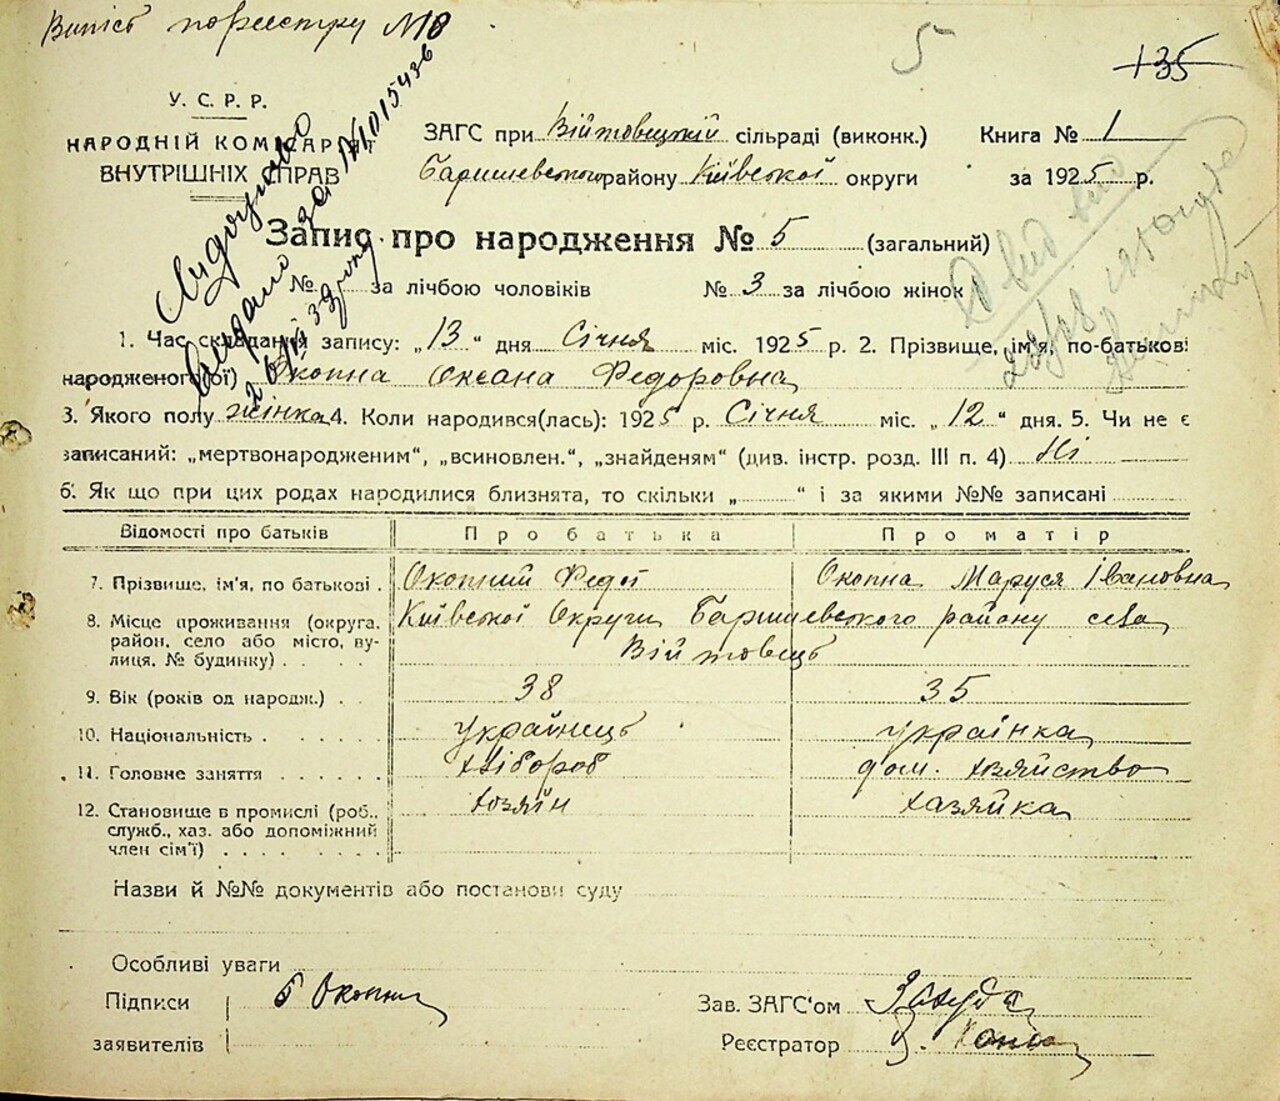 Випіс по реєстру №18
5
135
У. С. Р. Р.
НАРОДНІЙ КОМІСАРІЯТ
ВНУТРІШНІХ СПРАВ
№ 1015436
ЗАГС при Війтовецкій сільраді (виконк.)
Баришевского району Київскої округи
Книга № 1
за 1925 р.
Запис про народження № 5 (загальний)
№ за лічбою чоловіків № 3 за лічбою жінок
1. Час складання запису: „13" дня Січня міс. 1925 р. 2. Прізвище, ім'я, по-батькові
народженого(ої) Окопна Оксана Федоровна
3. Якого полу жінка 4. Коли народився(лась): 1925 р. Січня міс. „12" дня. 5. Чи не є
записаний: „мертвонародженим", „всиновлен.", „знайденям" (див. інстр. розд. III п. 4) Ні
6. Як що при цих родах народилися близнята, то скільки „ " і за якими №№ записані
Відомості про батьків Про батька Про матір
7. Прізвище, ім'я, по батькові . Окопний Федог Окопна Маруся Івановна
8. Місце проживання (округа, район, село або місто, вулиця, № будинку) . . . . Київскої Округи Баришевского району села
Війтовець
9. Вік (років од народж.) . . 38 35
10. Національність . . . . . українець українка
11. Головне заняття . . . . . . хлібороб дом. хозяйство
12. Становище в промислі (роб., хозяїн хазяйка
служб., хаз. або допоміжний
член сім'ї) . . . . . . . .
Назви й №№ документів або постанови суду
Особливі уваги
Підписи
заявителів
Окопни
Зав. ЗАГС'ом
Реєстратор